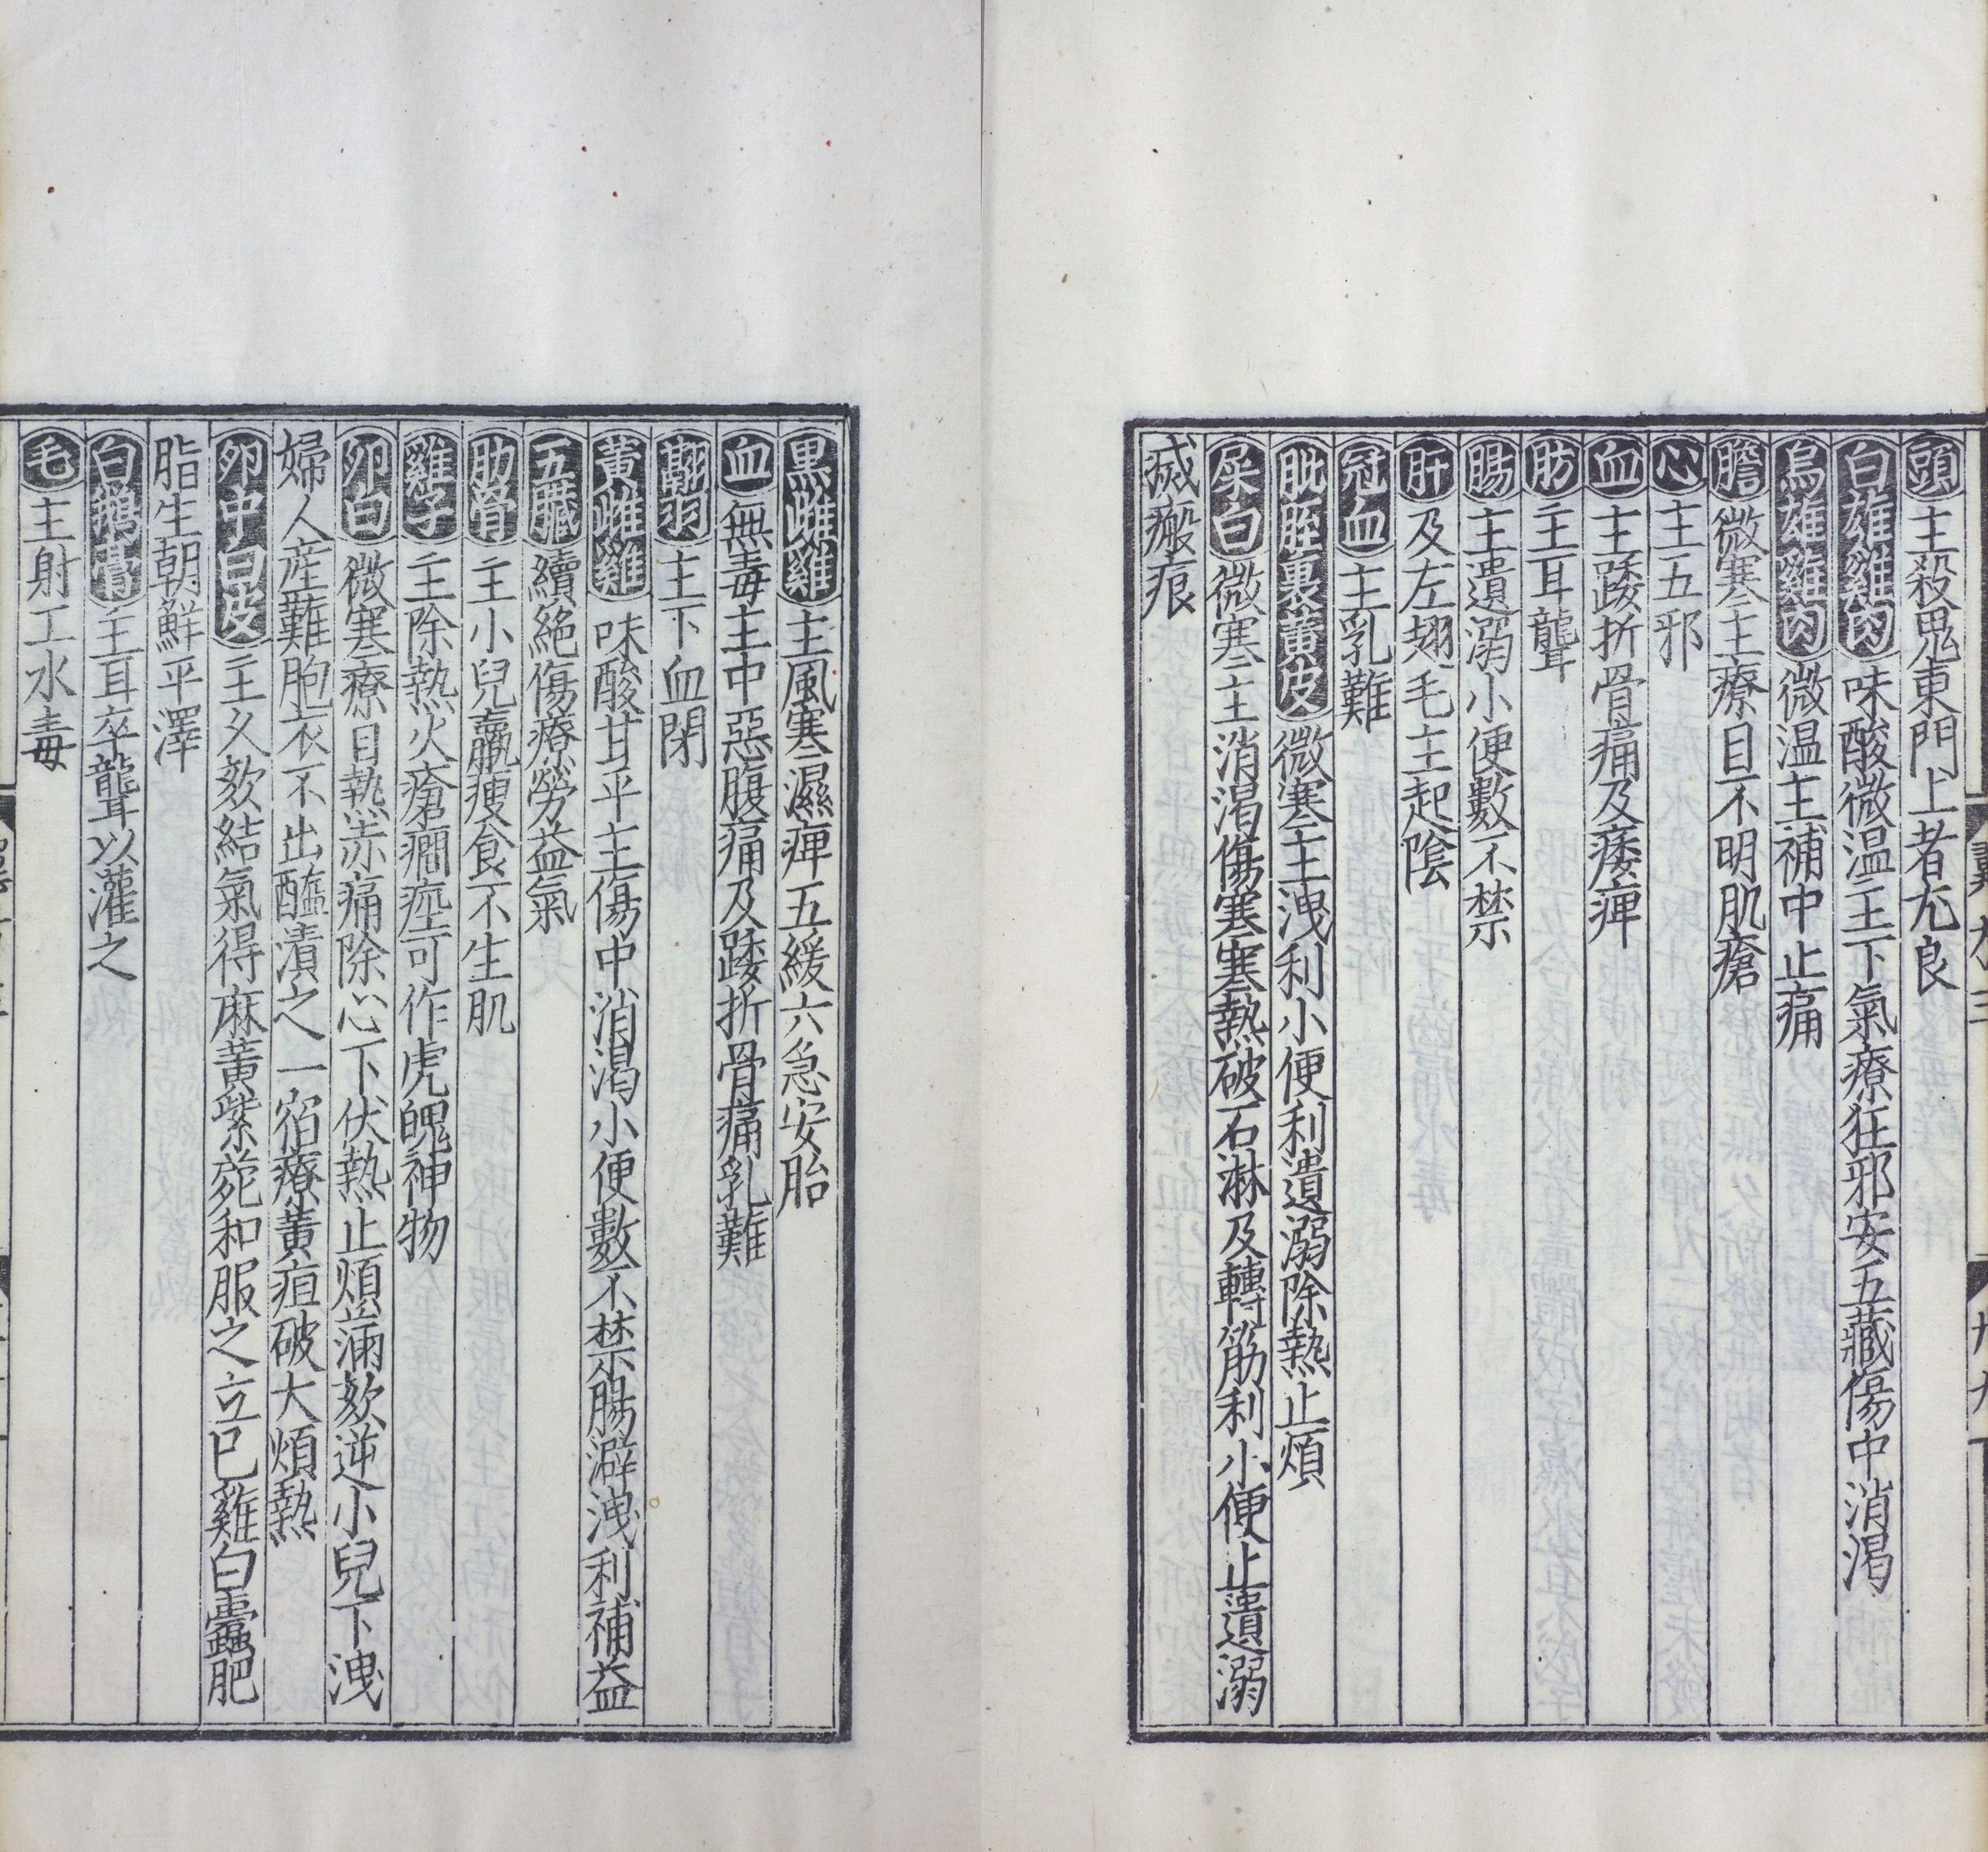 頭主殺鬼東門上者尤良
白雄雞肉味酸微温主下氣療狂邪安五藏傷中消渴
烏雄雞肉微温主補中止痛
膽微寒主療目不明肌瘡
心主五邪
血主踒折骨痛及痿痹
肪主耳聾
腸主遺溺小便數不禁
肝及左翅毛主起陰
冠血主乳難
肶胵裏黄皮微寒主洩利小便利遺溺除熱止煩
屎白微寒主消渴傷寒寒熱破石淋及轉筋利小便止遺溺
滅瘢痕
黑雌雞主風寒濕痹五緩六急安胎
血無毒主中惡腹痛及踒折骨痛乳難
翮羽主下血閉
黃雌雞味酸甘平主傷中消渴小便數不禁腸澼洩利補益
五臟續絕傷療勞益氣
肋骨主小兒羸瘦食不生肌
雞子主除熱火瘡癇痙可作虎魄神物
卵白微寒療目熱赤痛除心下伏熱止煩滿欬逆小兒下洩
婦人産難胞衣不出醯漬之一宿療黃疸破大煩熱
卵中白皮主久欬結氣得麻黃紫菀和服之立已雞白蠹肥
脂生朝鮮平澤
白鵝膏主耳卒聾以灌之
毛主射工水毒